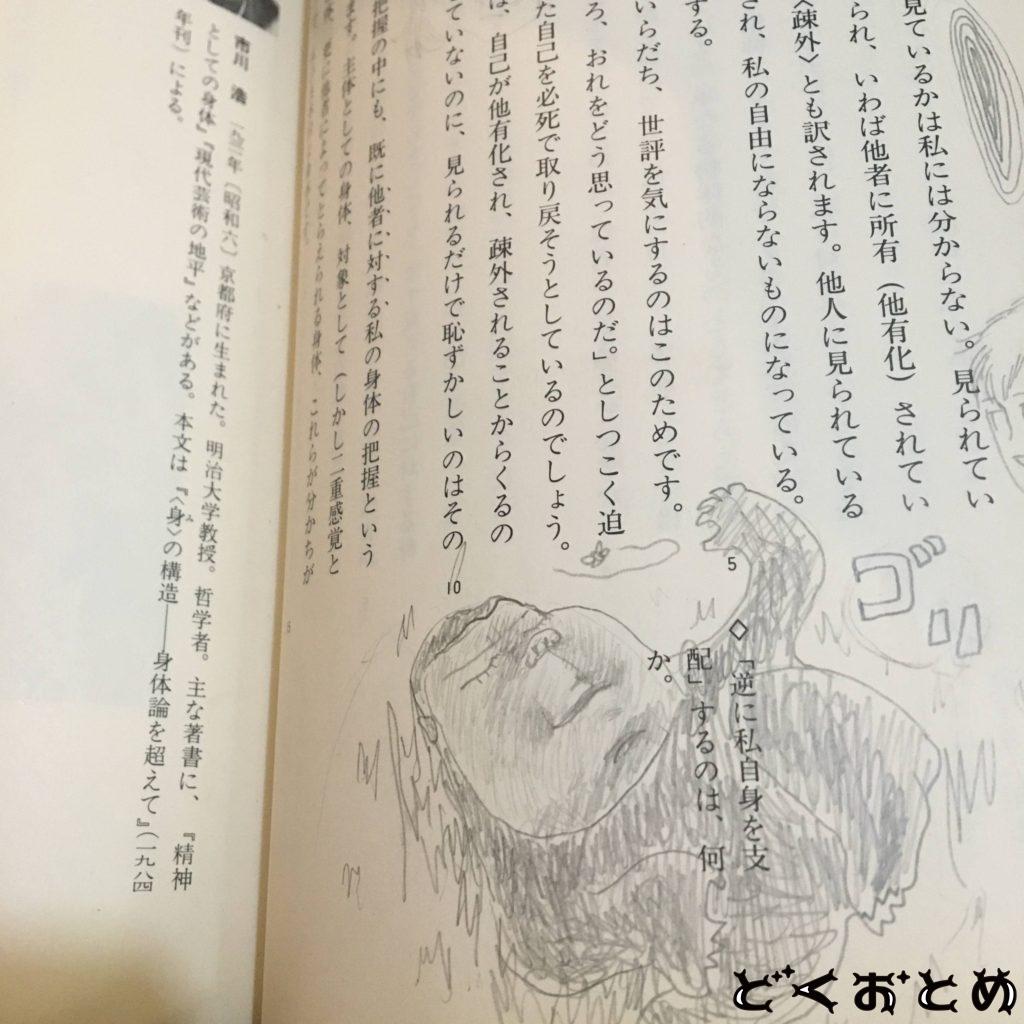 見ているかは私には分からない。見られてい
られ、いわば他者に所有（他有化）されてい
〈疎外〉とも訳されます。他人に見られている
され、私の自由にならないものになっている。
する。
いらだち、世評を気にするのはこのためです。
ろ、おれをどう思っているのだ。」としつこく迫
た自己を必死で取り戻そうとしているのでしょう。
は、自己が他有化され、疎外されることからくるの
ていないのに、見られるだけで恥ずかしいのはその
把握の中にも、既に他者に対する私の身体の把握という
ます。主体としての身体、対象として（しかし二重感覚と
によってとらえられる身体、これらが分かちが
5
10
◇「逆に私自身を支
配」するのは、何
か。
ゴゴ
市川 浩 一九三一年〔昭和六〕京都府に生まれた。明治大学教授。哲学者。主な著書に、『精神
としての身体』『現代芸術の地平』などがある。本文は『〈身〉の構造——身体論を超えて』（一九八四
年刊）による。
どくおとめ